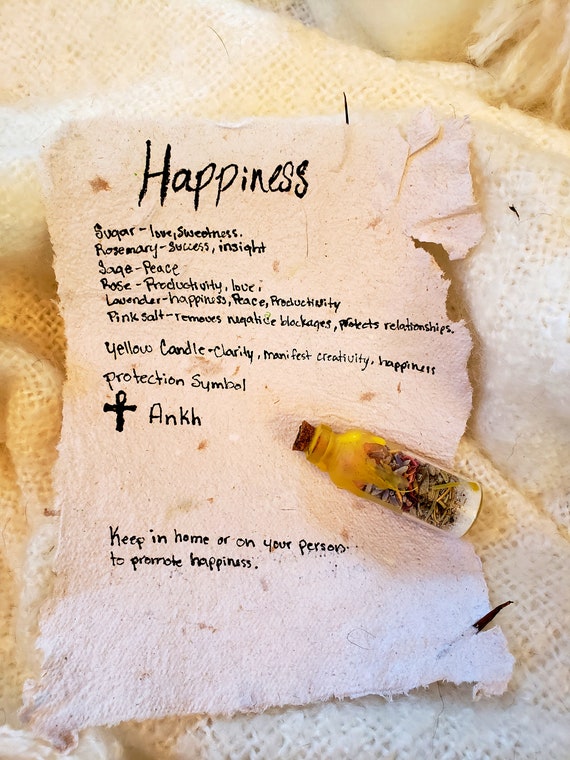 Happiness
Sugar - love, Sweetness.
Rosemary - Success, insight
Sage - Peace
Rose - Productivity, love;
Lavender - happiness, Peace, Productivity
Pink salt - removes negative blockages, protects relationships.
Yellow Candle - Clarity, manifest creativity, happiness
protection Symbol
Ankh
Keep in home or on your person
to promote happiness.